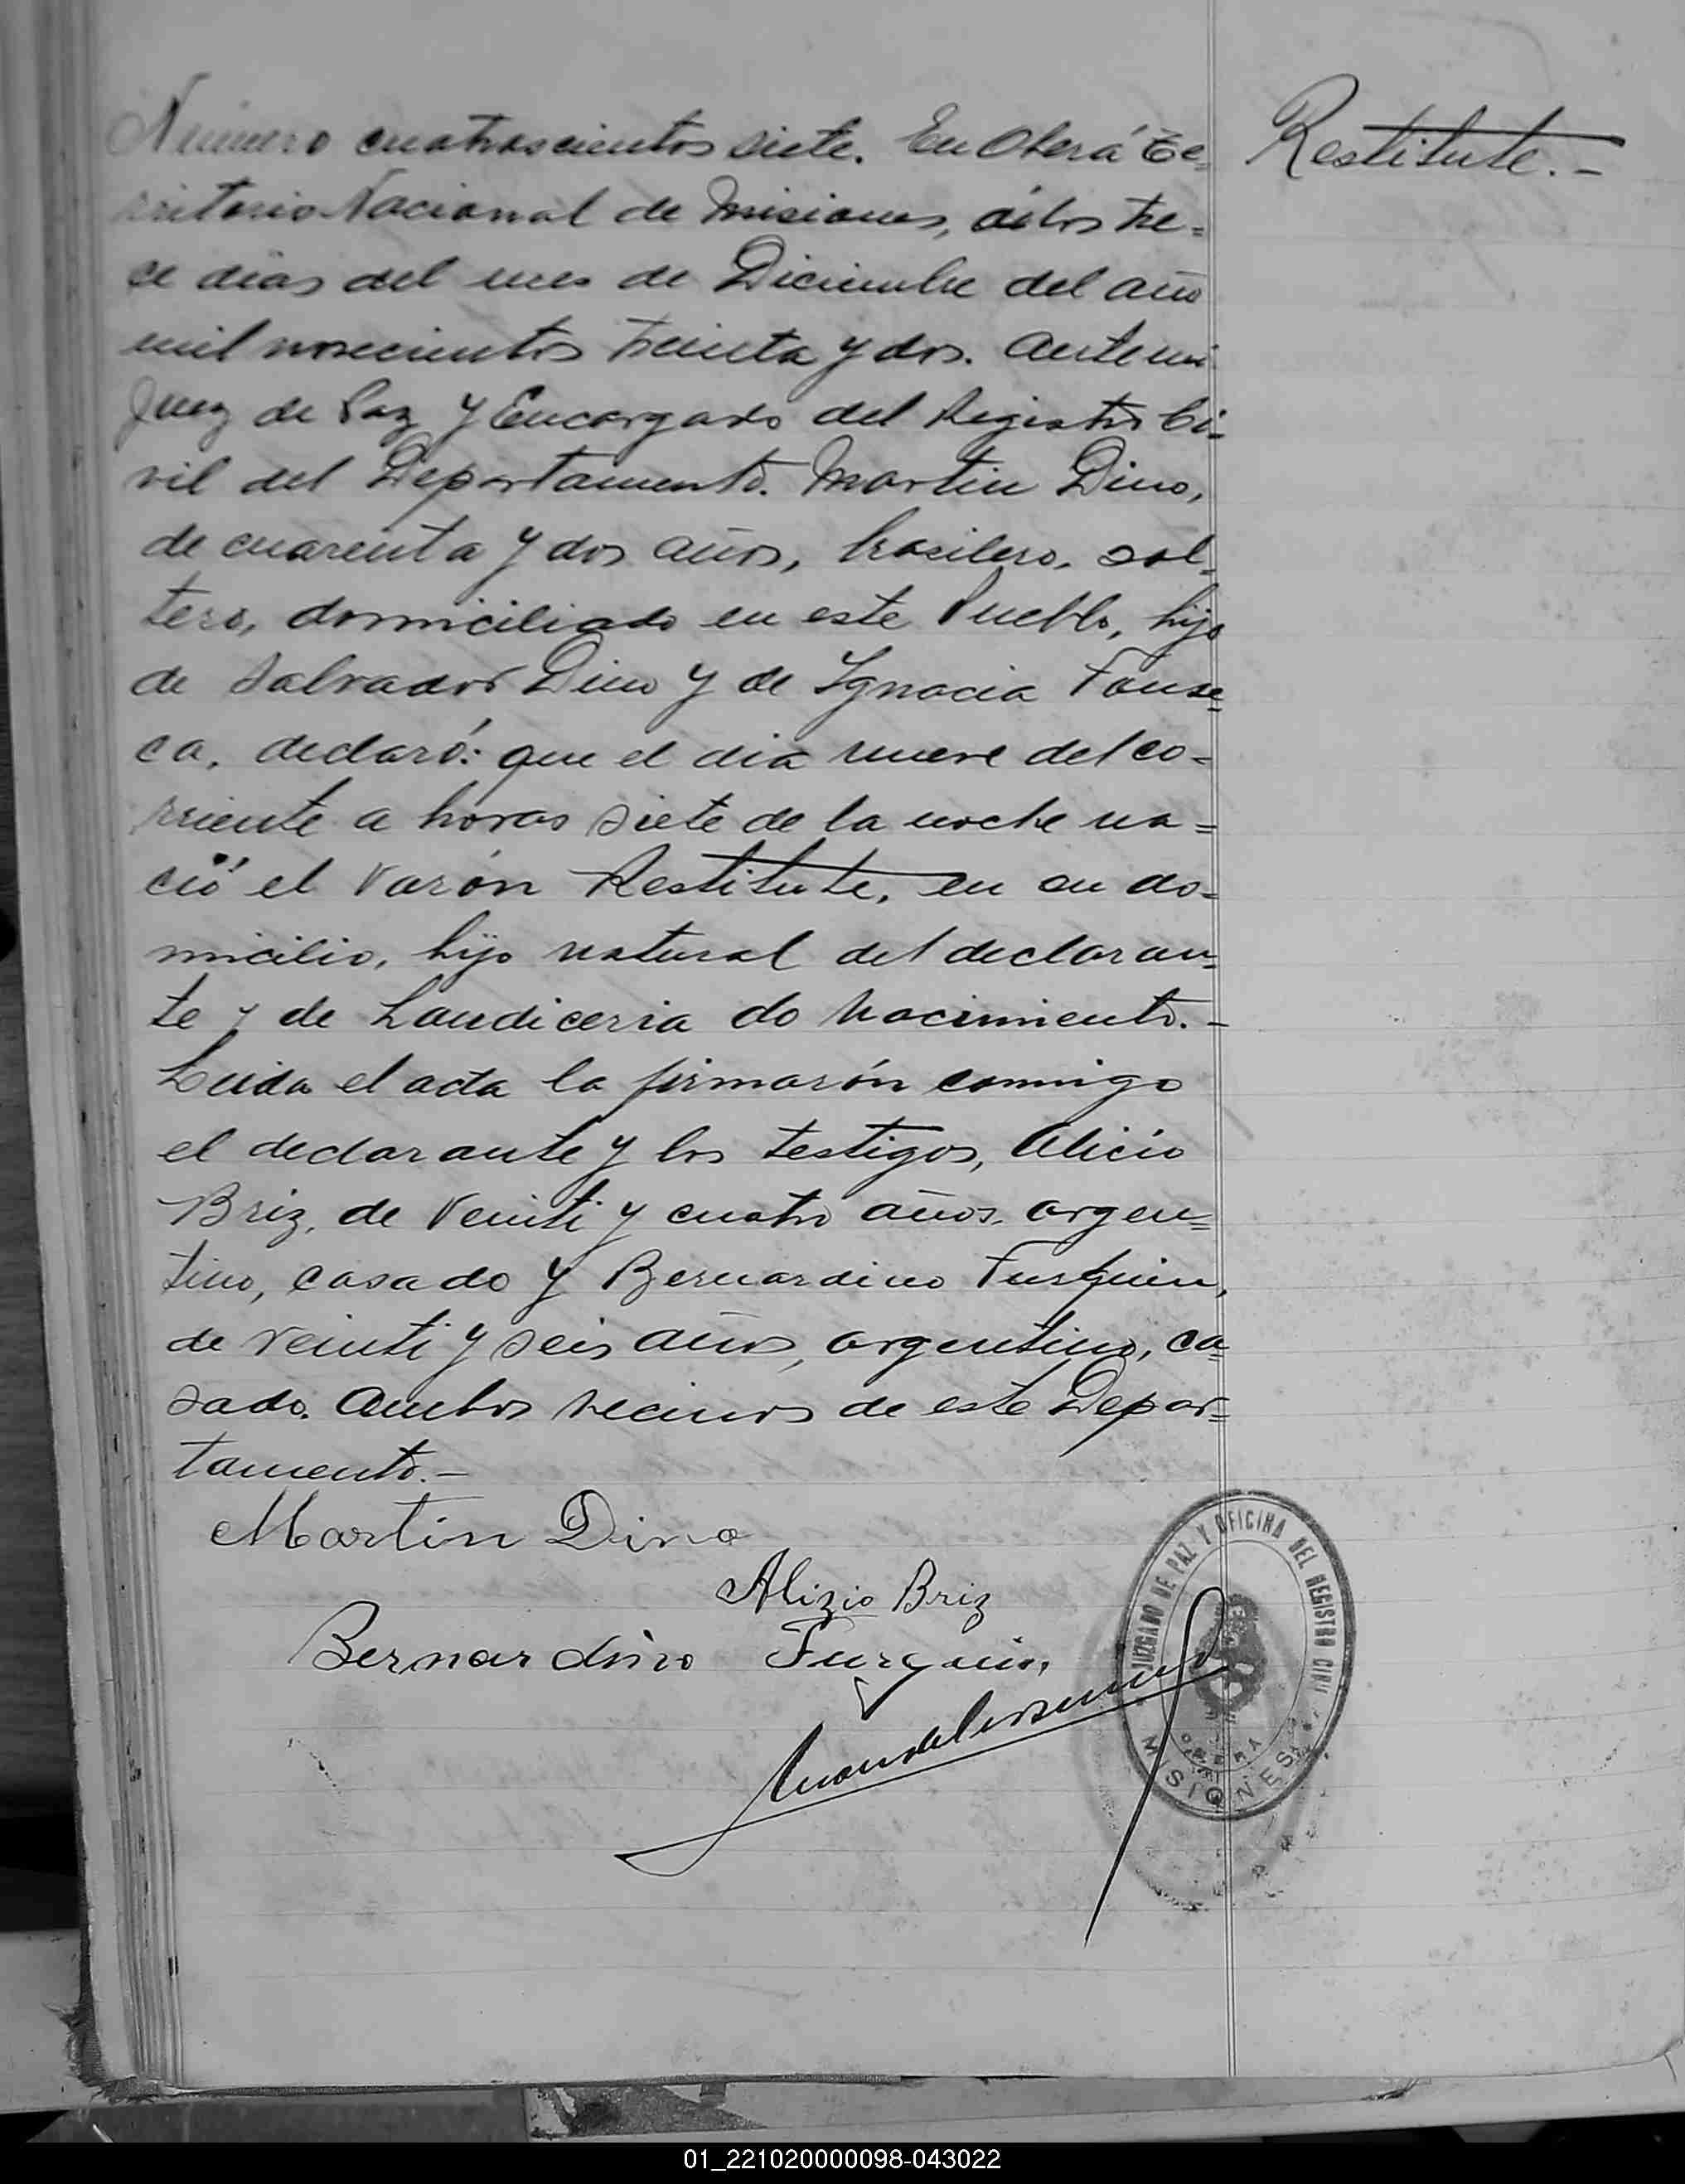 Número cuatroscientos siete. En Oberá Te-
rritorio Nacional de Misiones, á los tre=
ce dias del mes de Diciembre del año
mil novecientos treinta y dos. Ante mi
Juez de Paz y Encargado del Registro Ci-
vil del Departamento. Martin Dino,
de cuarenta y dos años, brasilero, sol=
tero, domiciliado en este Pueblo, hijo
de Salvador Dino y de Ignacia Fonse=
ca, declaró: que el dia nueve del co=
rriente a horas siete de la noche na=
ció el varón Restitute, en su do=
micilio, hijo natural del declaran=
te y de Laudiceria do Nacimiento.-
Leida el acta la firmarón conmigo
el declarante y los testigos, Alicio
Briz, de veinti y cuatro años, argen=
tino, casado y Bernardino Furquin,
de veinti y seis años, argentino, ca=
sado. Ambos vecinos de este Depar=
tamento.-
Restitute.-
Martin Dino
Alizio Briz
Bernardino Furquin
JUZGADO DE PAZ Y OFICINA DEL REGISTRO CIVIL
OBERÁ
MISIONES
01_221020000098-043022